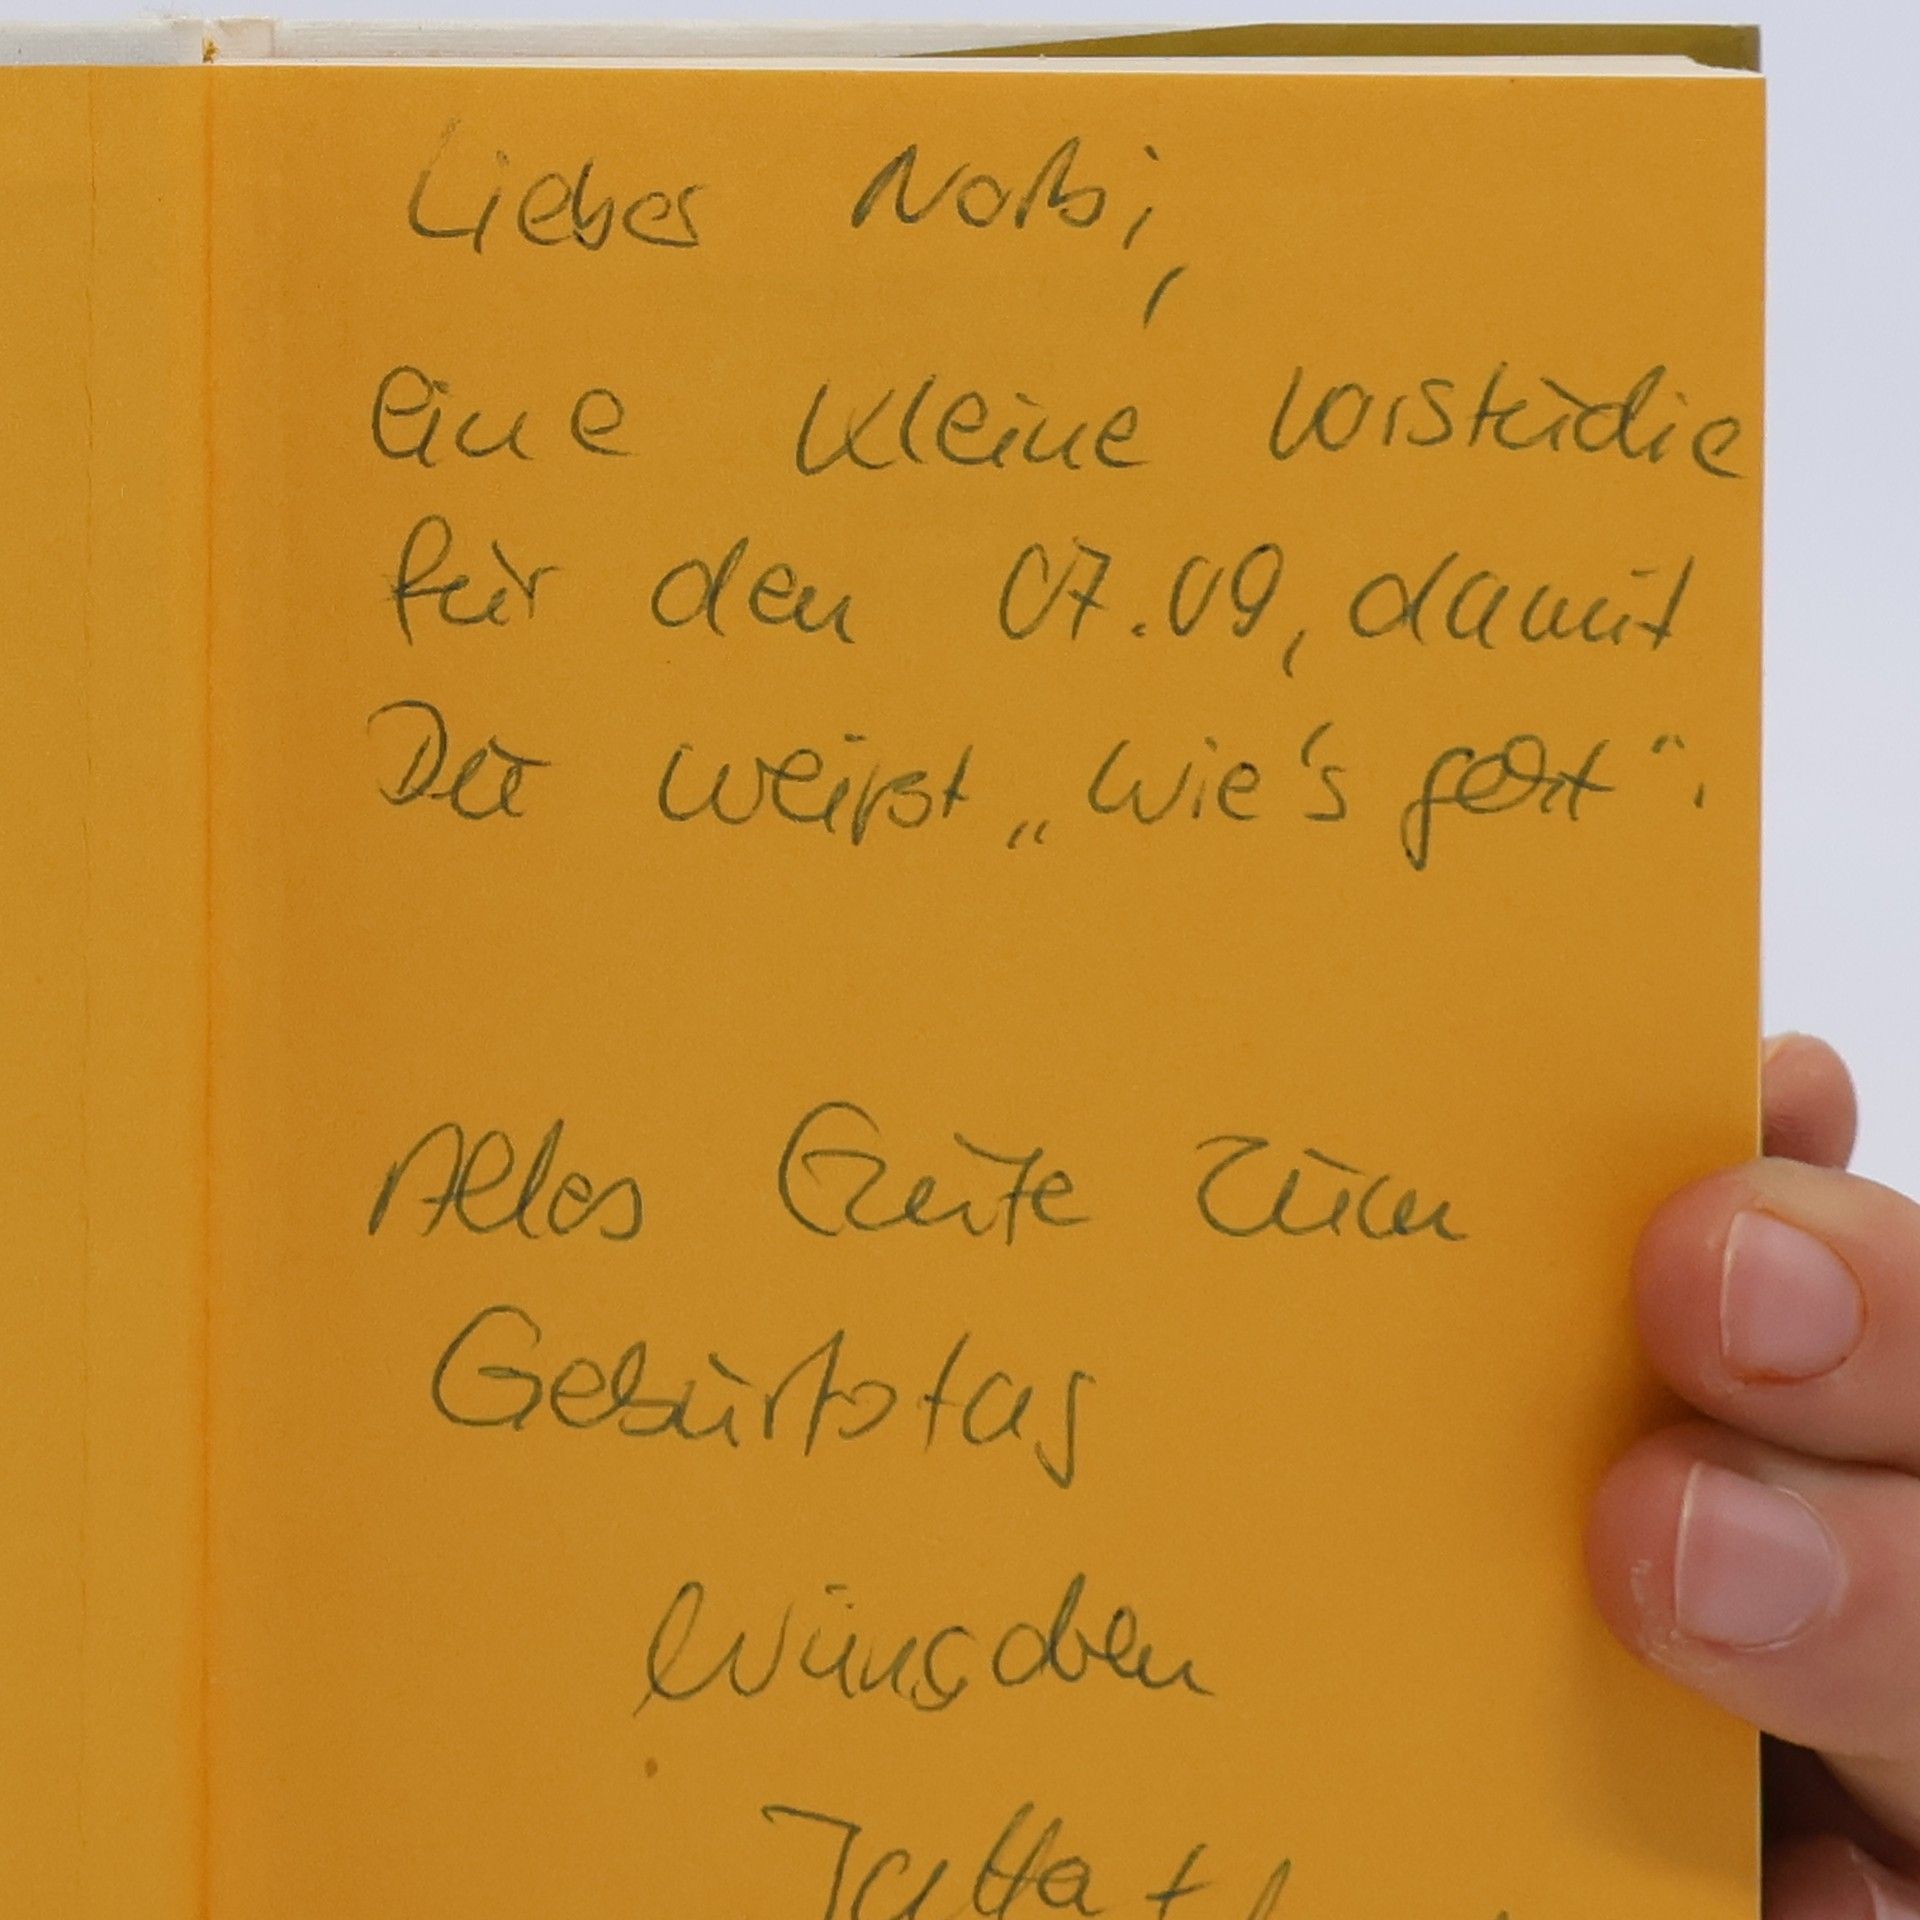 Lieber Nobi,
eine kleine Vorstudie
für den 07.09, damit
Du weißt „wie's geht".
Alles Gute zum
Geburtstag
wünschen
Jutta +